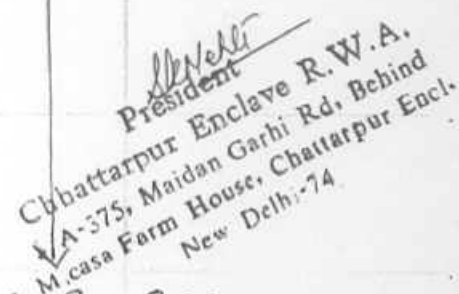 President
Chhattarpur Enclave R.W.A.
A-375, Maidan Garhi Rd, Behind
M.casa Farm House, Chattarpur Encl.
New Delhi-74